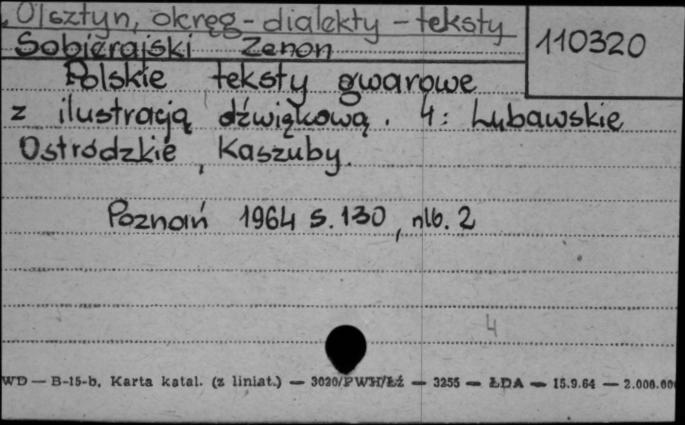 Olsztyn, okręg - dialekty - teksty
Sobierajski Zenon
110320
Polskie teksty gwarowe
z ilustracją dźwiękową. 4: Lubawskie
Ostródzkie, Kaszuby.
Poznań 1964 s. 130, nlb. 2
4
WD — B-15-b, Karta katal. (z liniat.) — 3020/PWH/Łź — 3255 — ŁDA — 15.9.64 — 2.000.000